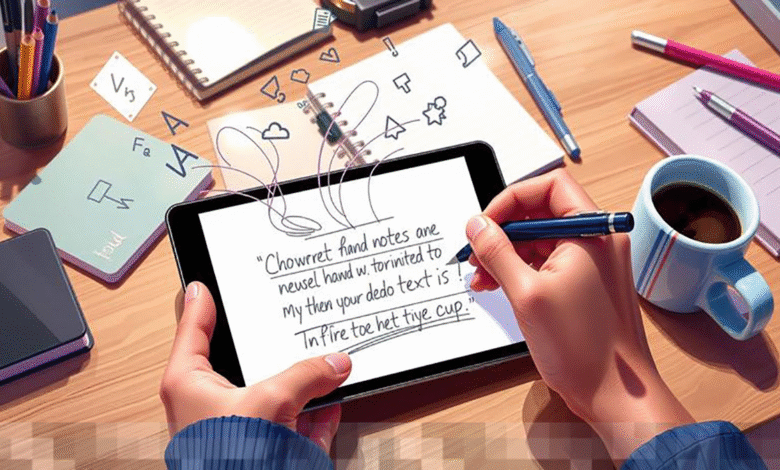 Vs
Fa
A
A
"Chowret hand notes ane
neusel hand w. torinited to
My then your dedo text is !
Infire toe het tiye cup."